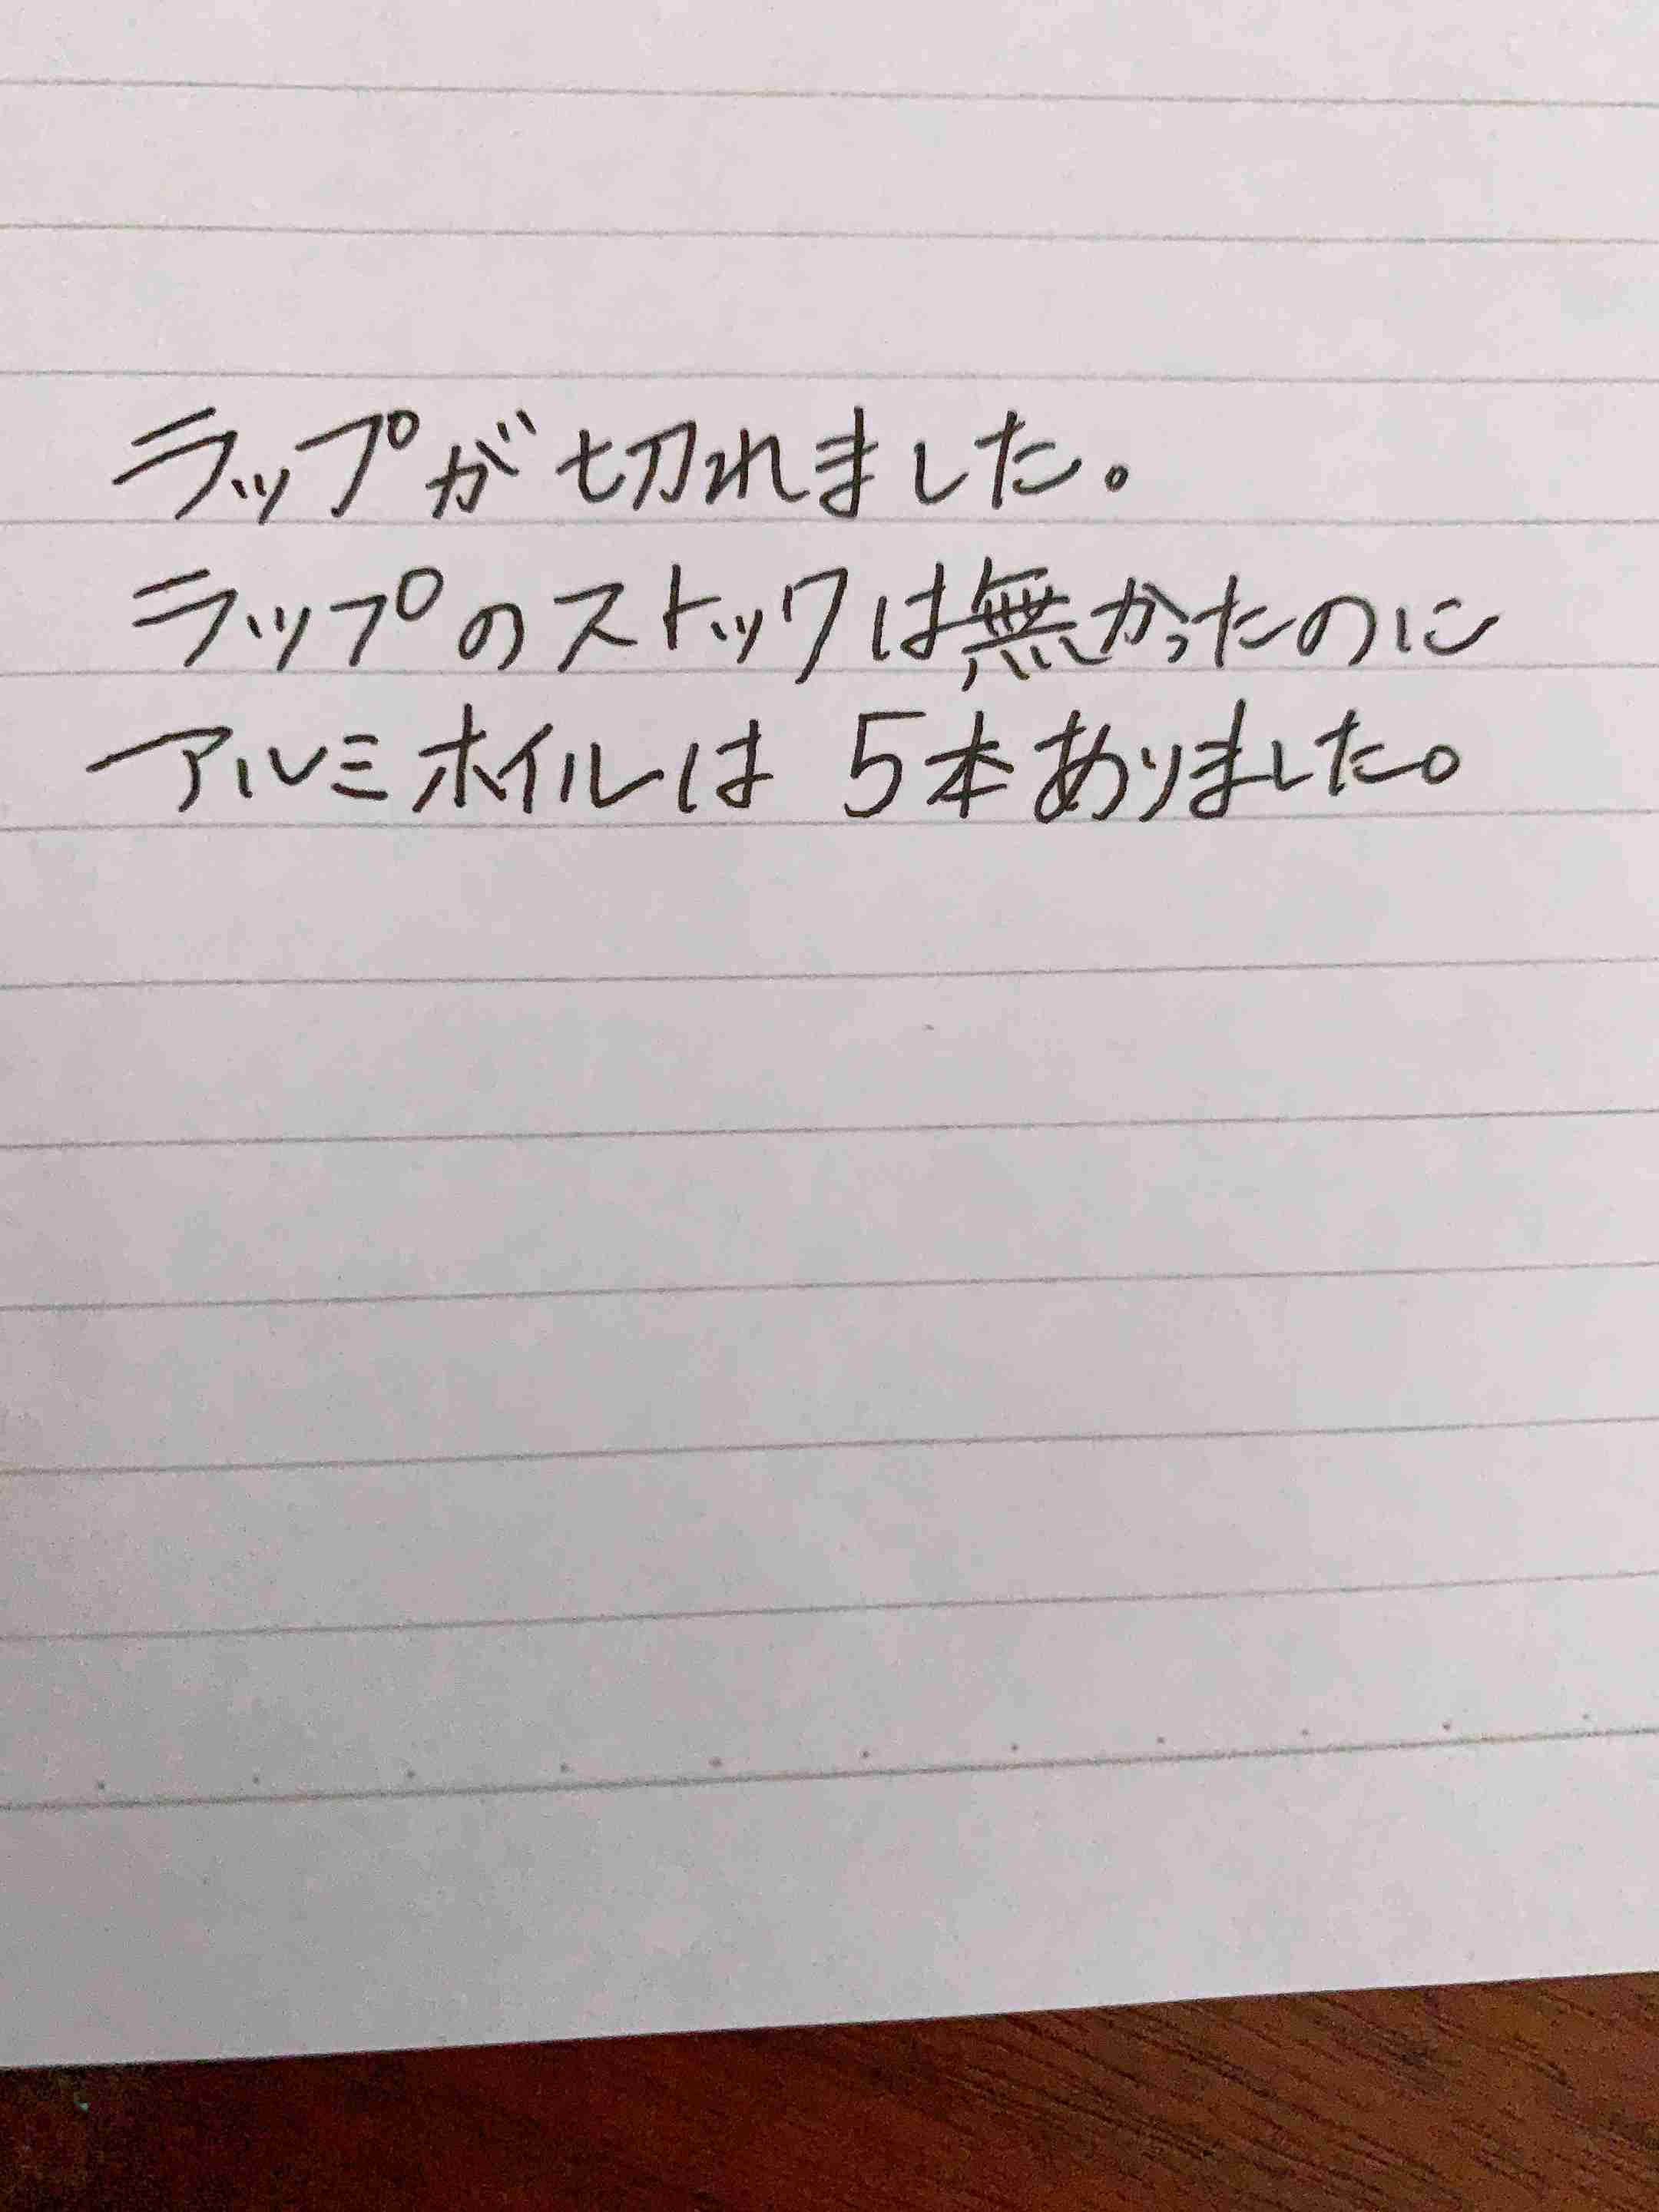 ラップが切れました。
ラップのストックは無かったのに
アルミホイルは5本ありました。